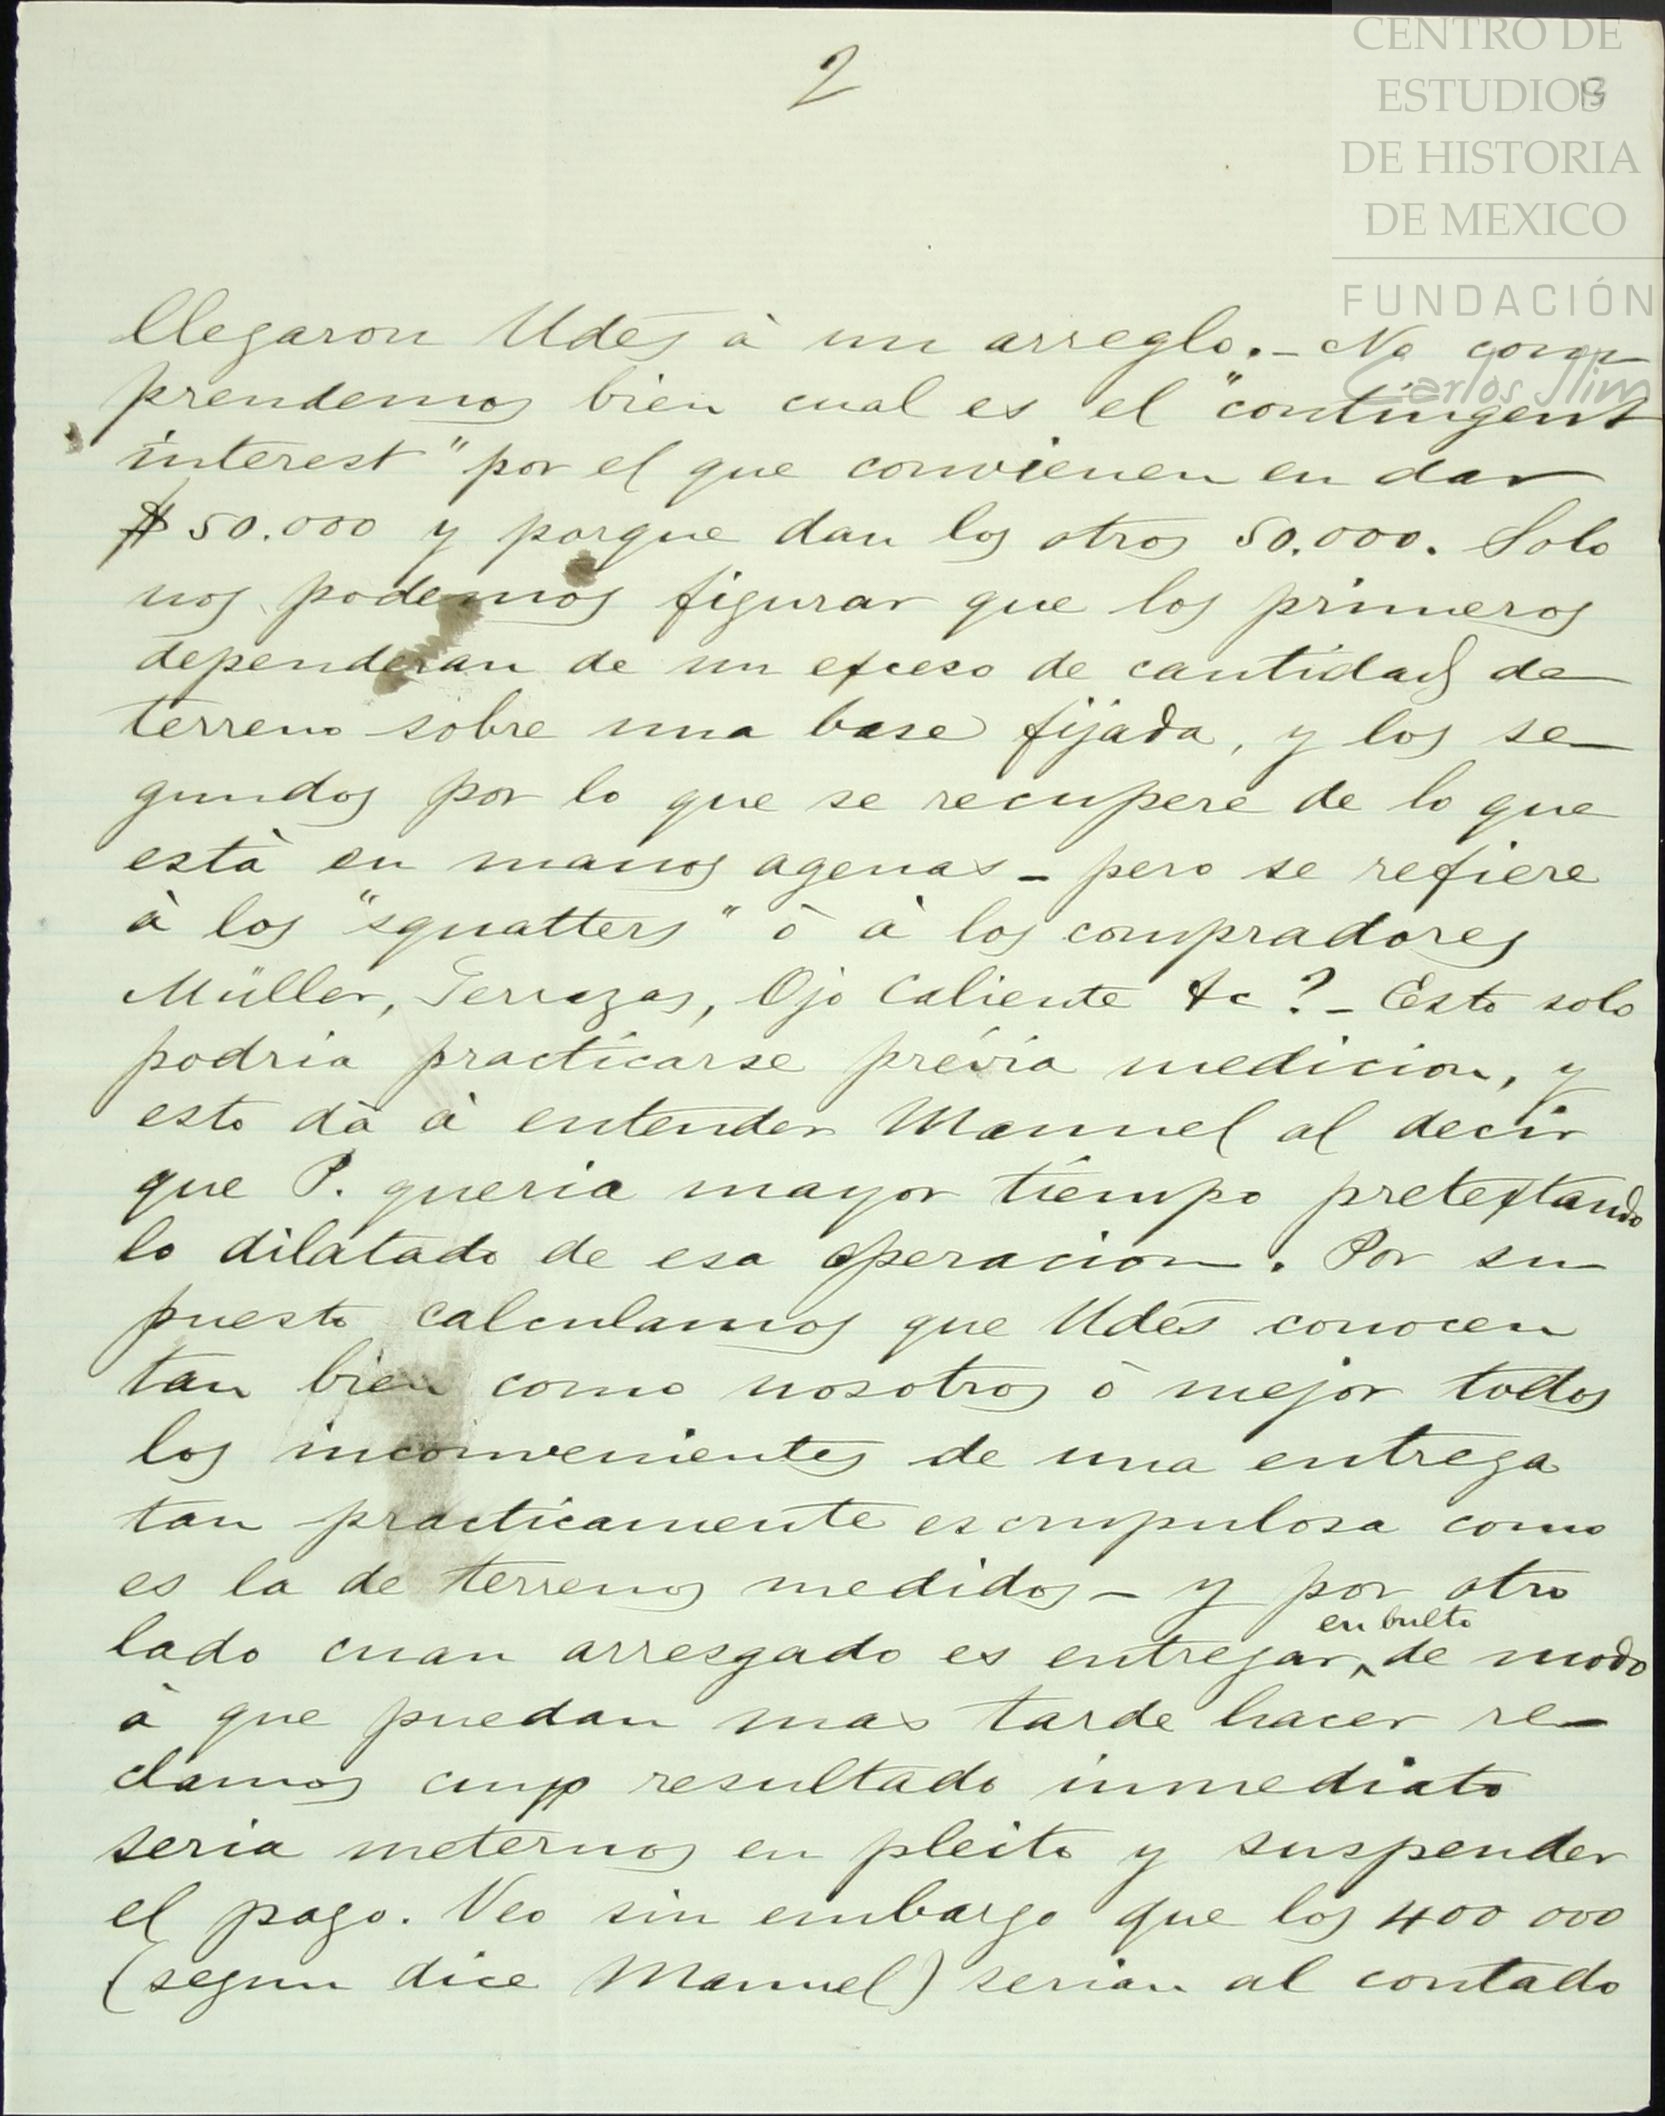 2
13
CENTRO DE
ESTUDIOS
DE HISTORIA
DE MEXICO
FUNDACIÓN
Carlos Slim
llegaron Udes à un arreglo. _ No com
prendemos bien cual es el "contingent
interest" por el que convienen en dar
$ 50.000 y porque dan los otros 50.000. Solo
nos podemos figurar que los primeros
dependeran de un exceso de cantidad de
terreno sobre una base fijada, y los se_
gundos por lo que se recupere de lo que
està en manos agenas _ pero se refiere
à los "squatters" ò à los compradores
Müller, Terrazas, Ojo Caliente &c? _ Esto solo
podria practicarse prévia medicion, y
esto dà à entender Manuel al decir
que P. queria mayor tiempo pretextando
lo dilatado de esa operacion. Por su
puesto calculamos que Udes conocen
tan bien como nosotros ò mejor todos
los inconvenientes de una entrega
tan practicamente escrupulosa como
es la de terrenos medidos _ y por otro
en bulto
lado cuan arresgado es entregar ^ de modo
à que puedan mas tarde hacer re_
clamos cuyo resultado inmediato
seria meternos en pleito y suspender
el pago. Veo sin embargo que los 400 000
(segun dice Manuel) serian al contado